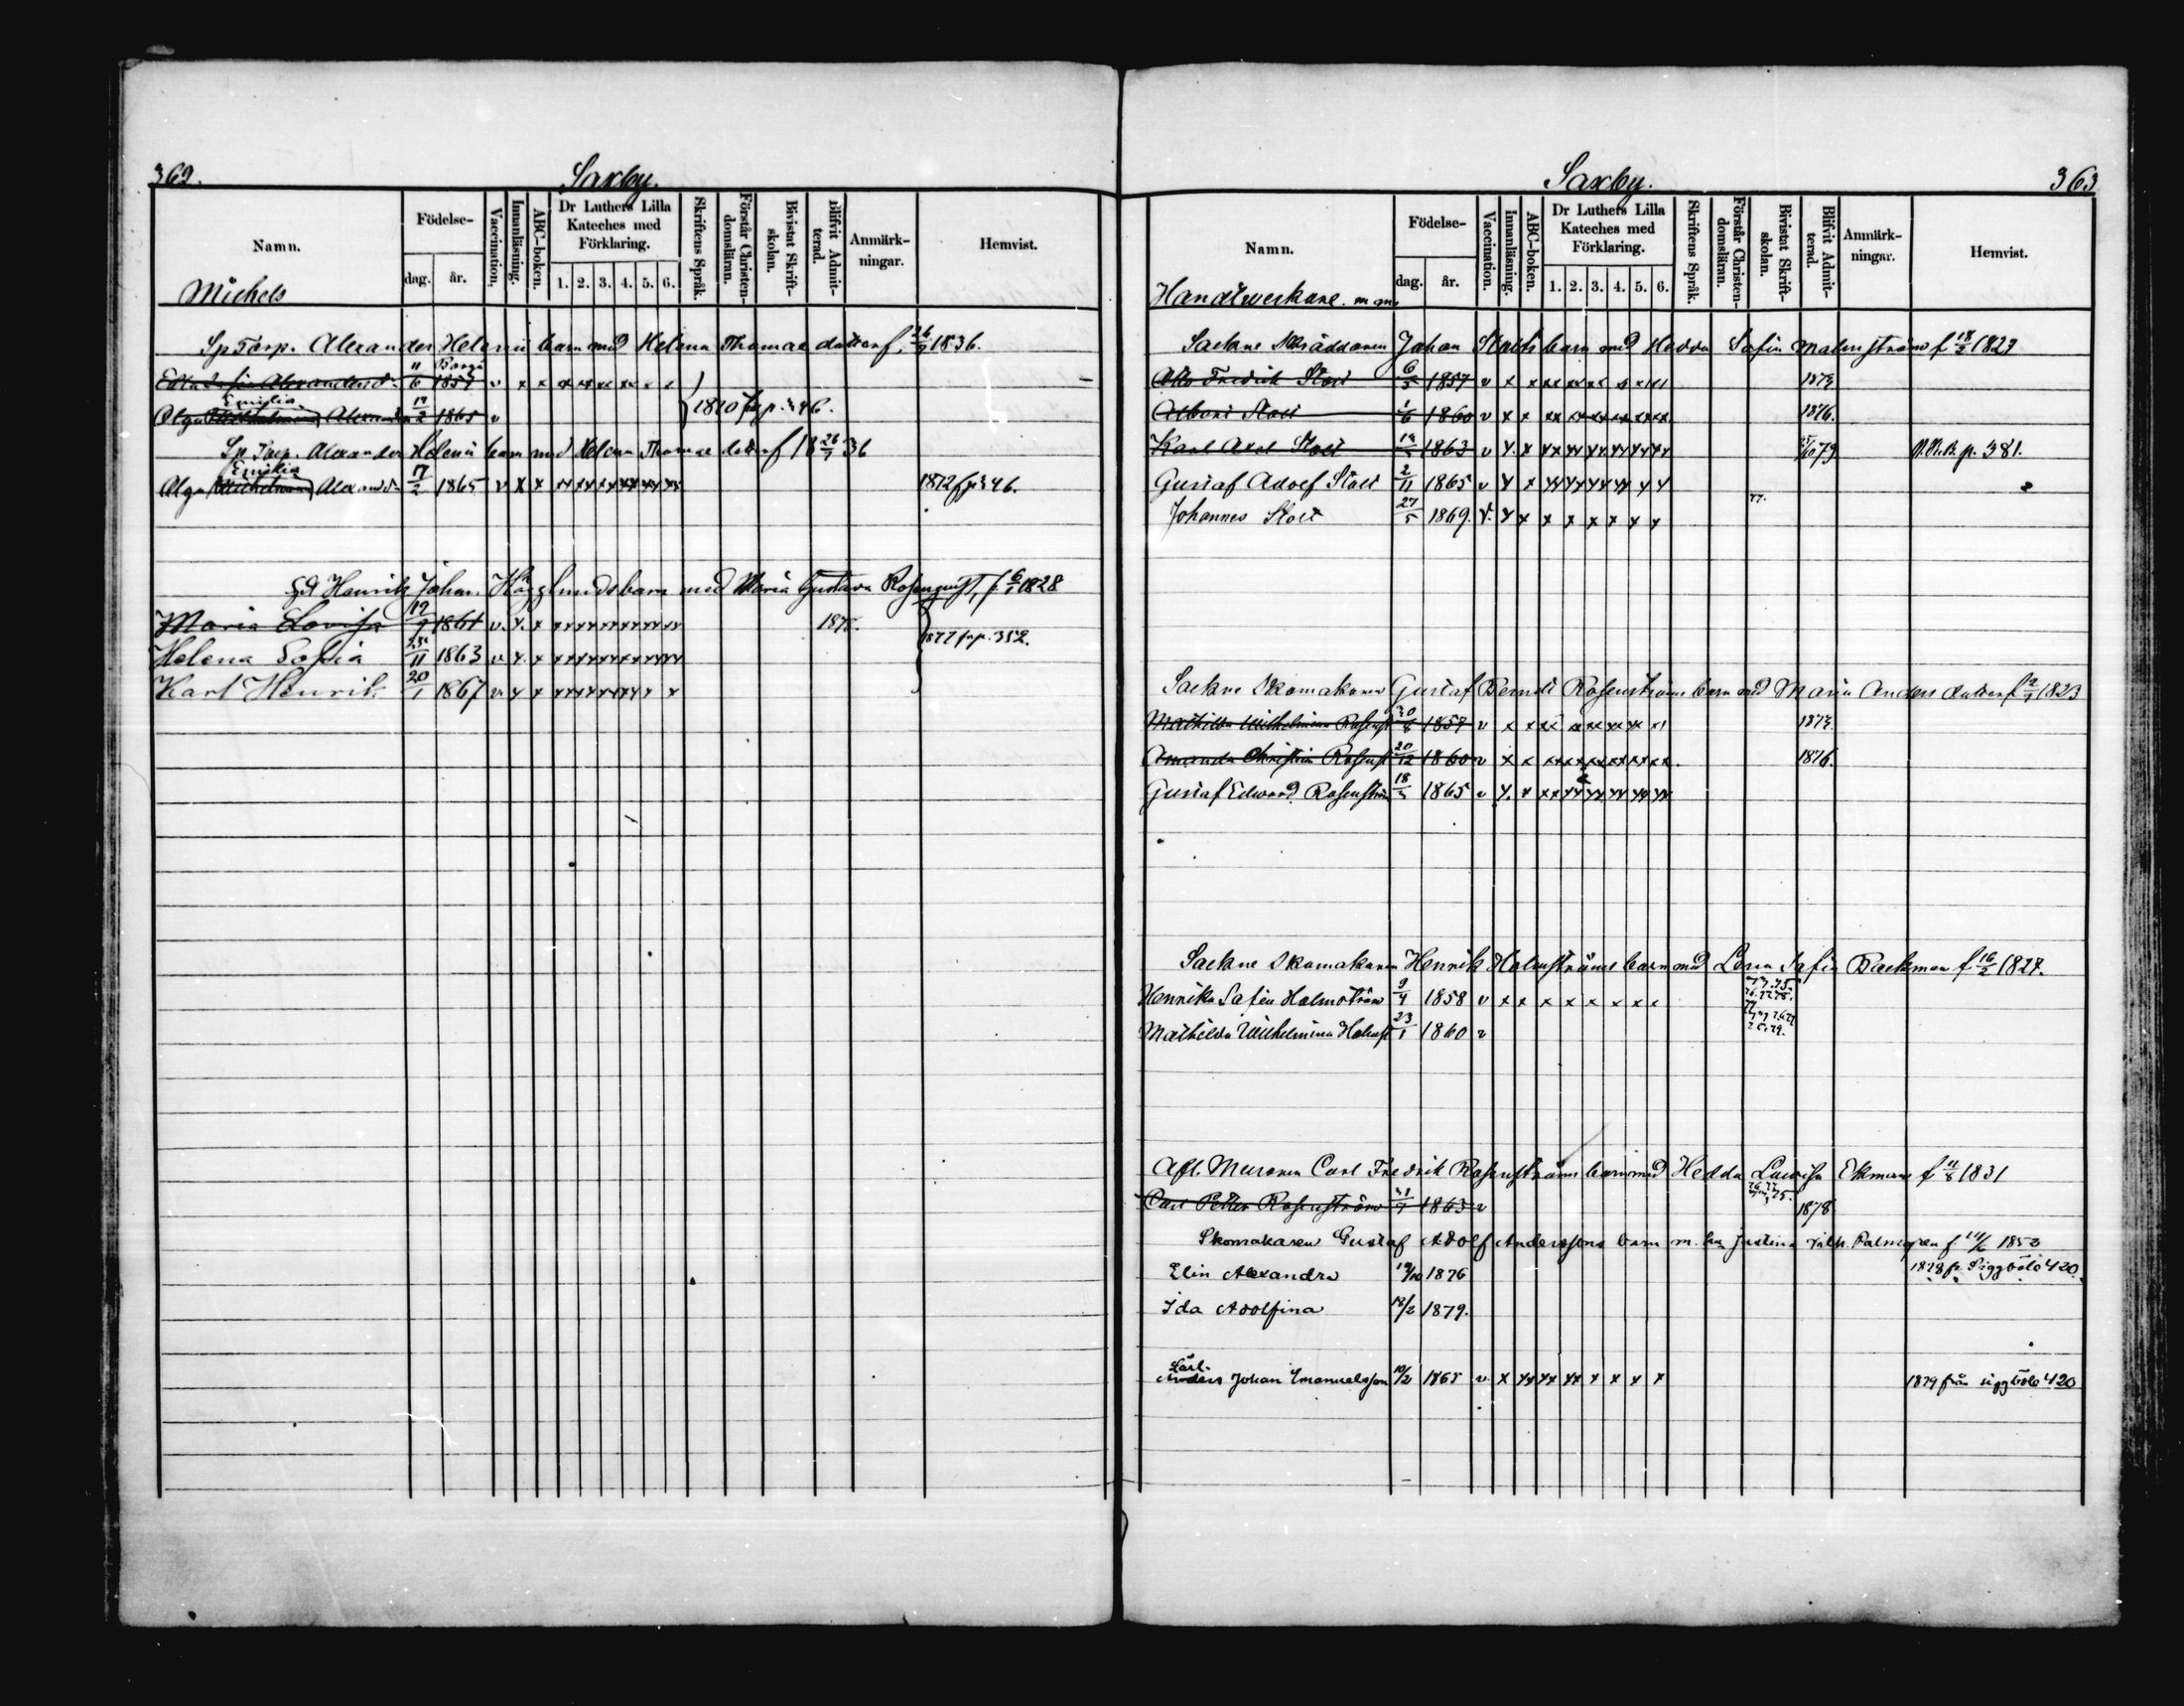 362. Saxby.
Namn. Födelse- dag. år. Vaccination. Innanläsning. ABC-boken. Dr Luthers Lilla Kateches med Förklaring. 1. 2. 3. 4. 5. 6. Skriftens Språk. Förstår Christen-domsläran. Bivistat Skrift-skolan. Blifvit Admit-terad. Anmärk-ningar. Hemvist.
Michels
Sp Torp. Alexander Helenii barn med Helena Thomae dotter f. 26/7 1836.
Borgå
Edla Sofia Alexandersd. 11/6 1857 v x x xx xx xx xx x x
Emilia
Olga Wilhelmina Alexandersd. 17/2 1865 v 1870 fr p. 346.
Sp Torp. Alexander Helenii barn med Helena Thomae dotter f 18 26/7 36
Emilia
Olga Wilhelmina Alexandersd. 17/2 1865 v x x xx xx xx xx xx xx 1872 f p 346.
Henrik Johan Hägglunds barn med Maria Gustava Rosenqvist, f. 6/1 1828
Maria Lovisa 12/9 1861 v. x. x xx xx xx xx xx xx 1878.
Helena Sofia 11 1863 v x. x xx xx xx xx xx xx 1877 fr p. 352.
Karl Henrik 20/1 1867 v. x x xx xx xx xx x x
Saxby. 363
Namn. Födelse- dag. år. Vaccination. Innanläsning. ABC-boken. Dr Luthers Lilla Kateches med Förklaring. 1. 2. 3. 4. 5. 6. Skriftens Språk. Förstår Christen-domsläran. Bivistat Skrift-skolan. Blifvit Admit-terad. Anmärk-ningar. Hemvist.
Handtverkare m m.
Sockne Skräddaren Johan Stolts barn med Hedda Sofia Malmström f 18/2 1829
Otto Fredrik Stolt 6/5 1857 v x x xx xx xx x x 1873
Albert Stolt 1/6 1860 v x x xx xx xx xx xx xx 1876.
Karl Axel Stolt 1863 v x. x xx xx xx xx xx xx 79 p. 381.
Gustaf Adolf Stolt 2/11 1865 v x x xx xx xx xx x x
Johannes Stolt 27/5 1869. v. x x x x x x x x 77.
Sockne Skomakaren Gustaf Berndt Rosenströms barn med Maria Anders dotter f 2/7 1823
Mathilda Wilhelmina Rosenst 1857 v x x xx xx xx xx xx x 1873
Amanda Christina Rosenst 20/12 1860 v x x xx xx xx xx xx xx. 1876.
Gustaf Edvard Rosenström 18/5 1865 v x. x xx xx xx xx xx xx
Sockne Skomakaren Henrik Holmströms barn med Lovisa Sofia Backman f. 16/2 1827.
Henrika Sofia Holmström 9/4 1858 v x x x x x x x x
Mathilda Wilhelmina Holmst 23/1 1860 v
Afl. Muraren Carl Fredrik Rosenströms barn med Hedda Lovisa Ekman f. 11/8 1831
Carl Petter Rosenström 1863 v 1878
Skomakaren Gustaf Adolf Anderssons barn m. hu Justina Math. Palmgren f 14/6 1853
Elin Alexandra 19/10 1876 1878 fr Siggböle 420.
Ida Adolfina 18/2 1879.
Lärl.
Anders Johan Emanuelsson 10/2 1865 v. x xx xx xx x x x x 1879 från siggböle 420